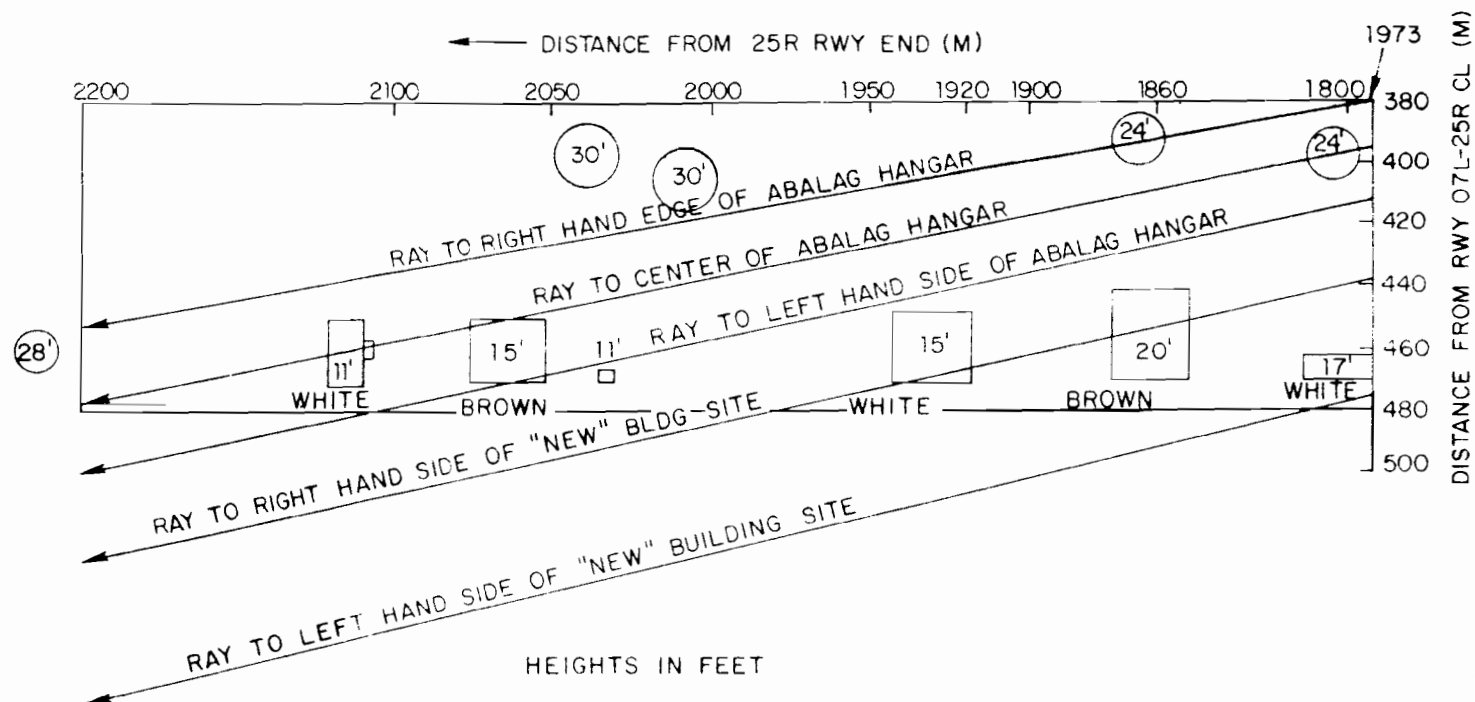 DISTANCE FROM 25R RWY END (M)
1973
2200 2100 2050 2000 1950 1920 1900 1860 1800
380
400
420
440
460
480
500
DISTANCE FROM RWY 07L-25R CL (M)
30'
30'
24'
24'
RAY TO RIGHT HAND EDGE OF ABALAG HANGAR
RAY TO CENTER OF ABALAG HANGAR
RAY TO LEFT HAND SIDE OF ABALAG HANGAR
28'
11'
15'
11'
15'
20'
17'
WHITE
BROWN
WHITE
BROWN
WHITE
RAY TO RIGHT HAND SIDE OF "NEW" BLDG-SITE
RAY TO LEFT HAND SIDE OF "NEW" BUILDING SITE
HEIGHTS IN FEET